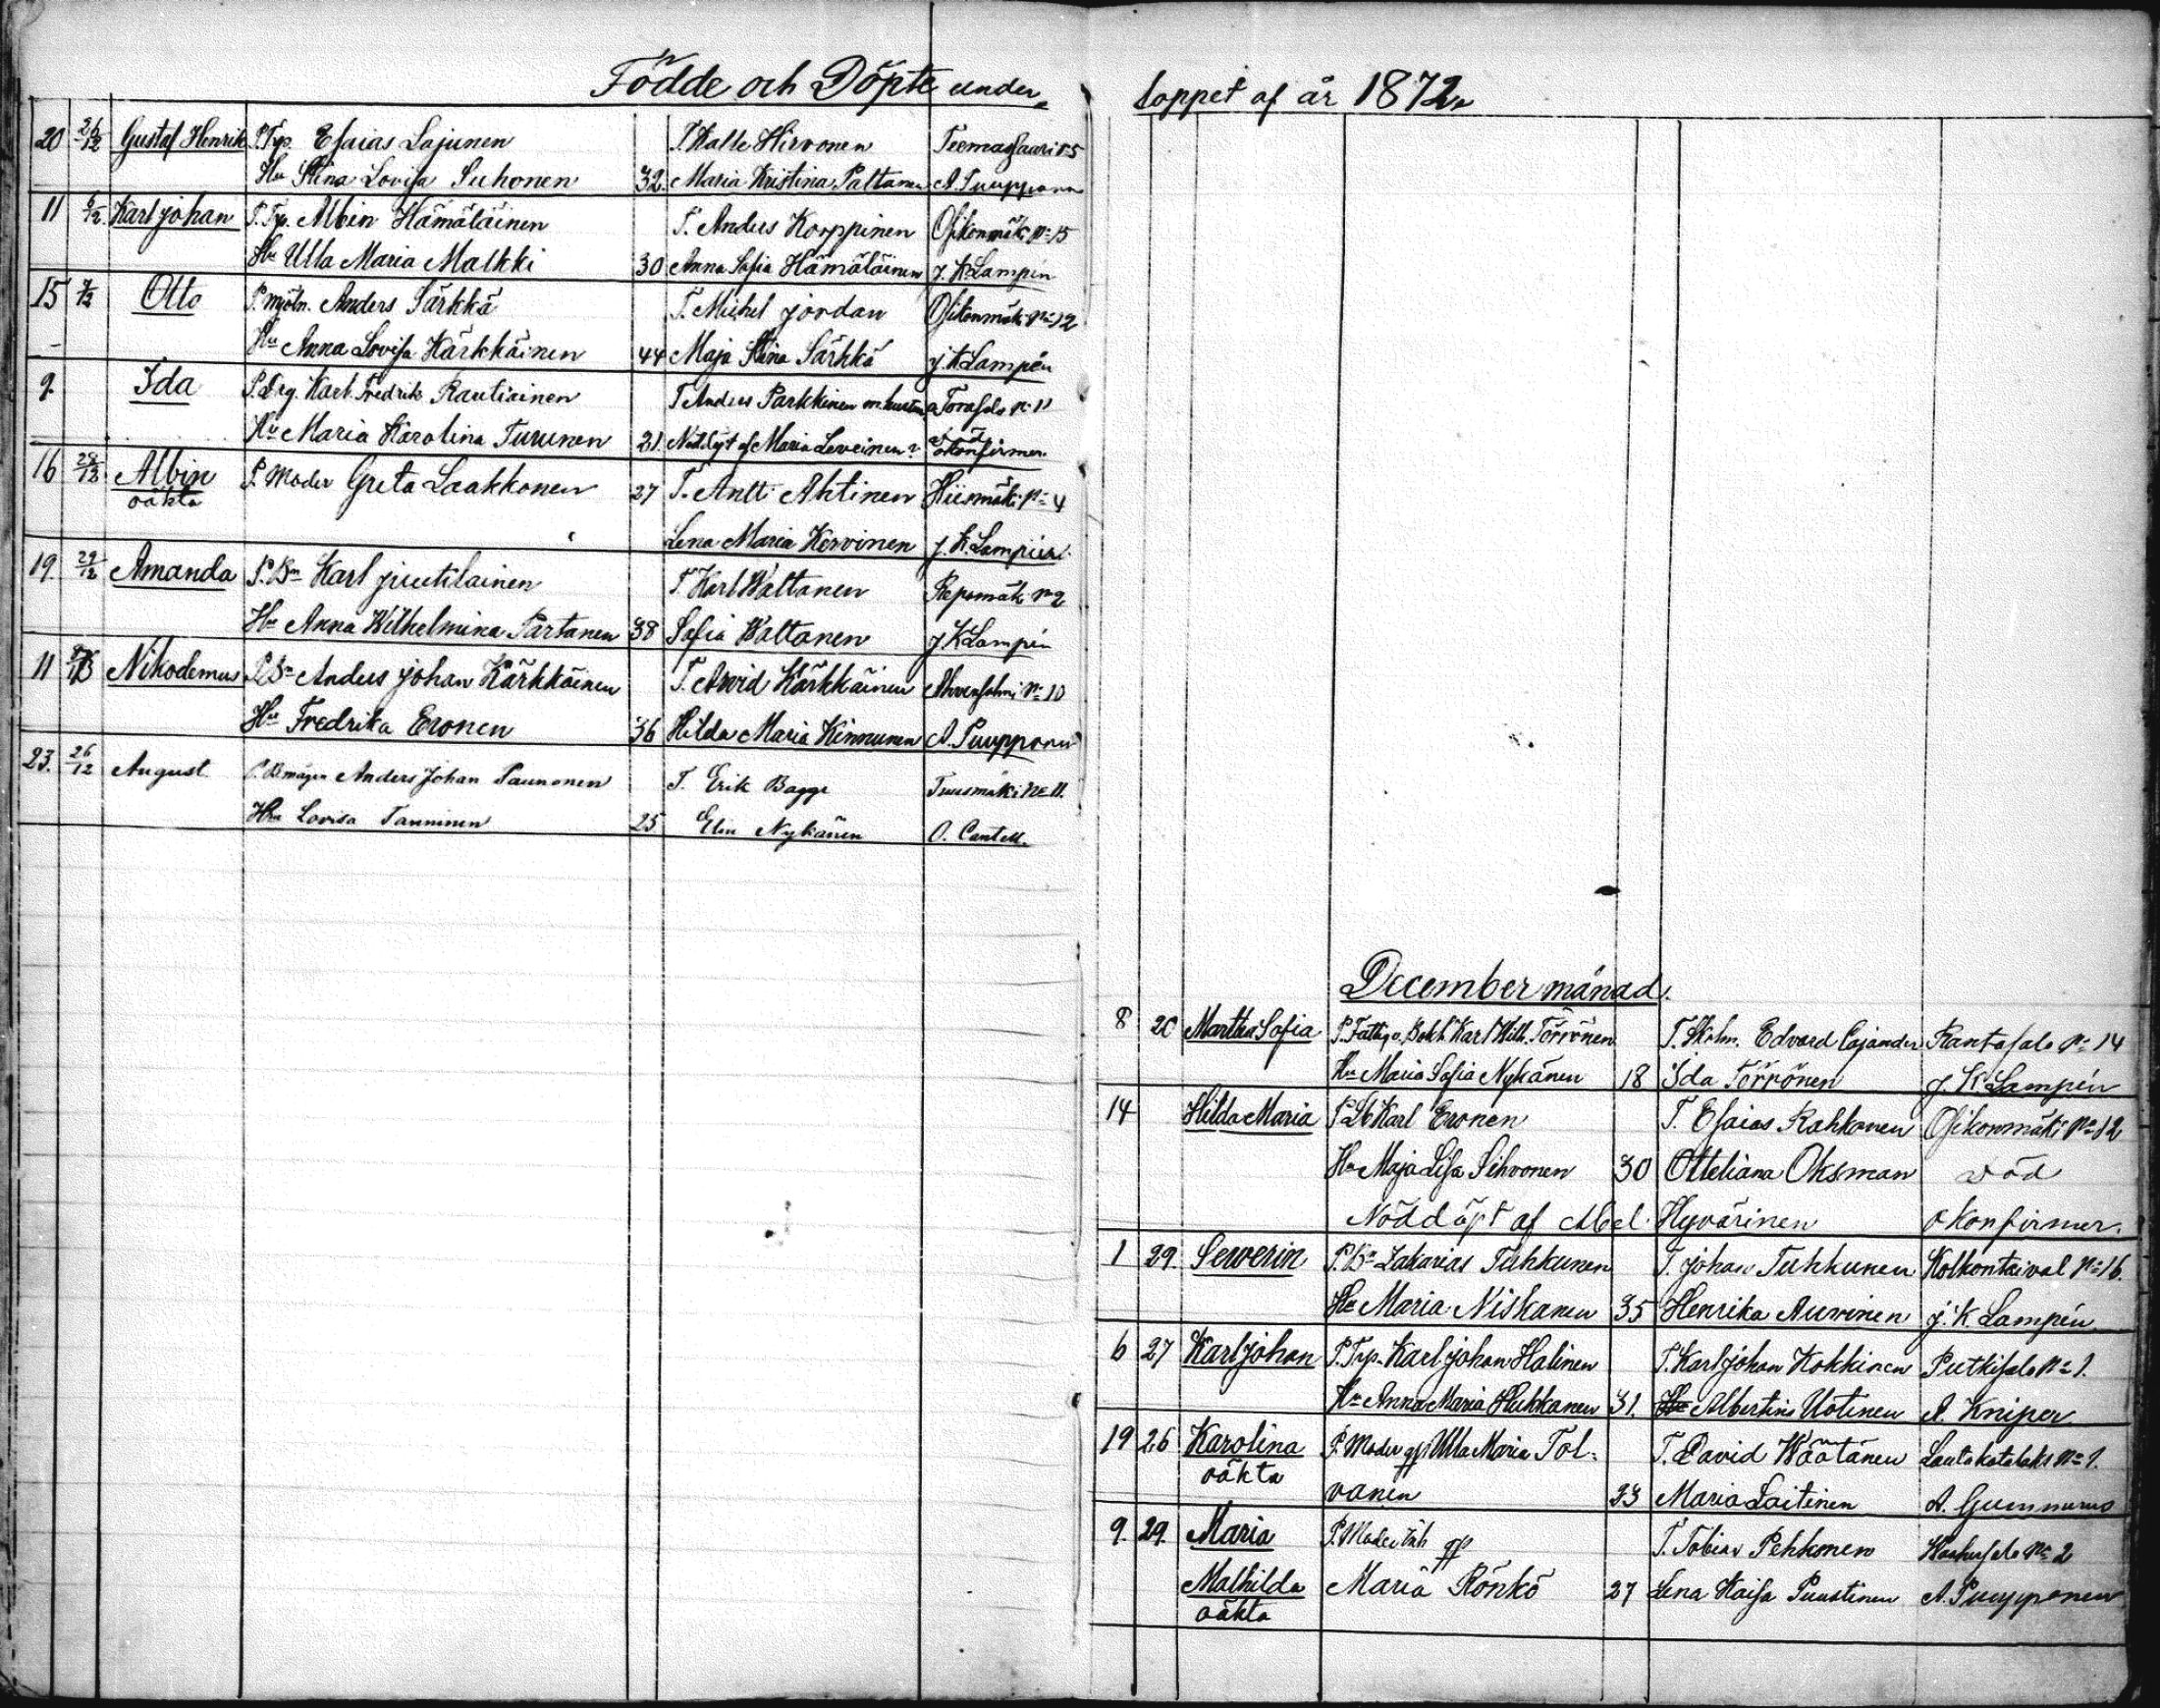 Födde och Döpte under
20 26/12 Gustaf Henrik P. Trp. Esaias Lajunen T. Kalle Hirvonen Teemassaari 15
Hu Stina Lovisa Suhonen 32 Maria Kristina Paltanen A. Puupponen
11 6/12 Karl johan T. Trp. Albin Hämäläinen T. Anders Korppinen Osikonmäki No 15
Hu Ulla Maria Malkki 30 Anna Sofia Hämäläinen J. K. Lampén
15 7/12 Otto P. mjöln. Anders Särkkä T. Michel jordan Osikonmäki No 12
Hu Anna Lovisa Kärkkäinen 44 Maja Stina Särkkä J. K. Lampén
9. Ida P. Drg. Karl Fredrik Rautiainen T Anders Parkkinen m. hustru Torasalo No 11
Hu Maria Karolina Turunen 21. Nöddöpt af Maria Leveinen död okonfirmer.
16 28/12 Albin P. Moder Greta Laakkonen 27 T. Antti Ahtinen Hiismäki No 4
oäkta
Lena Maria Kervinen J. K. Lampén
19. 29/12 Amanda P. Bn Karl juutilainen T Karl Waltanen Repomäki No 2
Hu Anna Wilhelmina Partanen 38 Sofia Waltanen J K Lampén
11 Nikodemus P. Bn Anders johan Kärkkäinen T. Arvid Kärkkäinen Ahvensalmi No 10
Hu Fredrika Eronen 36 Hilda Maria Kinnunen A. Puupponen
23. 26/12 August Anders Johan Paunonen T. Erik Bagge Tuusmäki No 11.
Hu Lovisa Tanninen 25 Elin Nykänen O. Cantell.
loppet af år 1872.
December månad.
8 20 Martha Sofia P. Fattig. Bokh. Karl Wilh. Törrönen T. Skolm. Edvard Cajander Rantasalo No 14
Hu Maria Sofia Nykänen 18 Ida Törrönen J. K. Lampén
14 Hilda Maria P Lb Karl Eronen T. Esaias Rahkonen Osikonmäki No 12
Hu Maja Lisa Sihvonen 30 Otteliana Oksman död
Nöddöpt af Abel Hyvärinen okonfirmer.
1 29. Sewerin P. Bn Zakarias Tuhkunen T. johan Tuhkunen Kolkontaival No 16.
Hu Maria Niskanen 35 Henrika Auvinen J. K. Lampén
6 27 Karl johan P. Trp. Karl johan Halinen T. Karl johan Kokkinen Putkisalo No 1.
Hu Anna Maria Hukkanen 31. Hu Albertina Uotinen A. Kniper
19 26 Karolina P. Moder Ulla Maria Tol- T. David Wäätänen Lautakotalaks No 1.
oäkta vanen 23 Maria Laitinen A. Gummerus
9. 29. Maria P. Moder Inh T. Tobias Pehkonen No 2
Mathilda Maria Rönkö 27 Lena Kaisa Puustinen A. Puupponen
oäkta